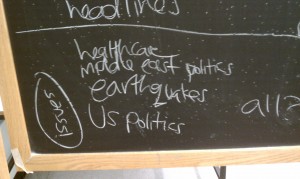 headlines
healthcare
middle east politics
earthquakes
US politics
issues